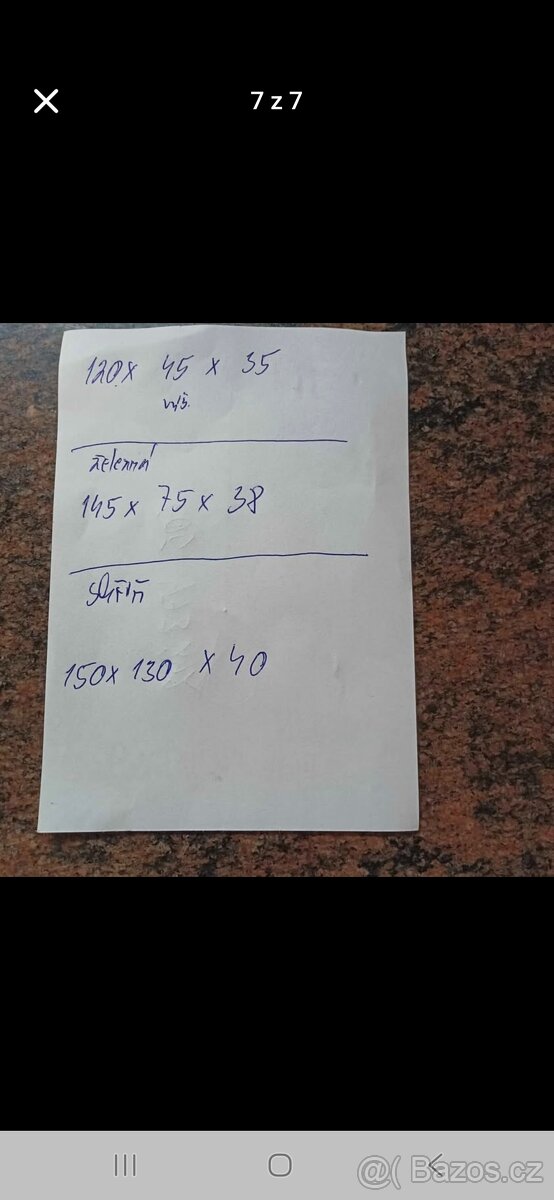 7 z 7
120 x 45 x 35
výš.
železná
145 x 75 x 38
150 x 130 x 40
@( Bazos.cz